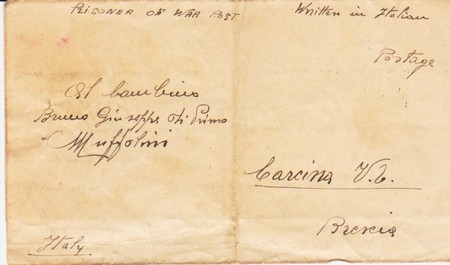 PRISONER OF WAR POST
Written in Italian
Postage
Al bambino
Bruno Giuseppe di Primo
Muffolini
Carcina V.T.
Brescia
Italy